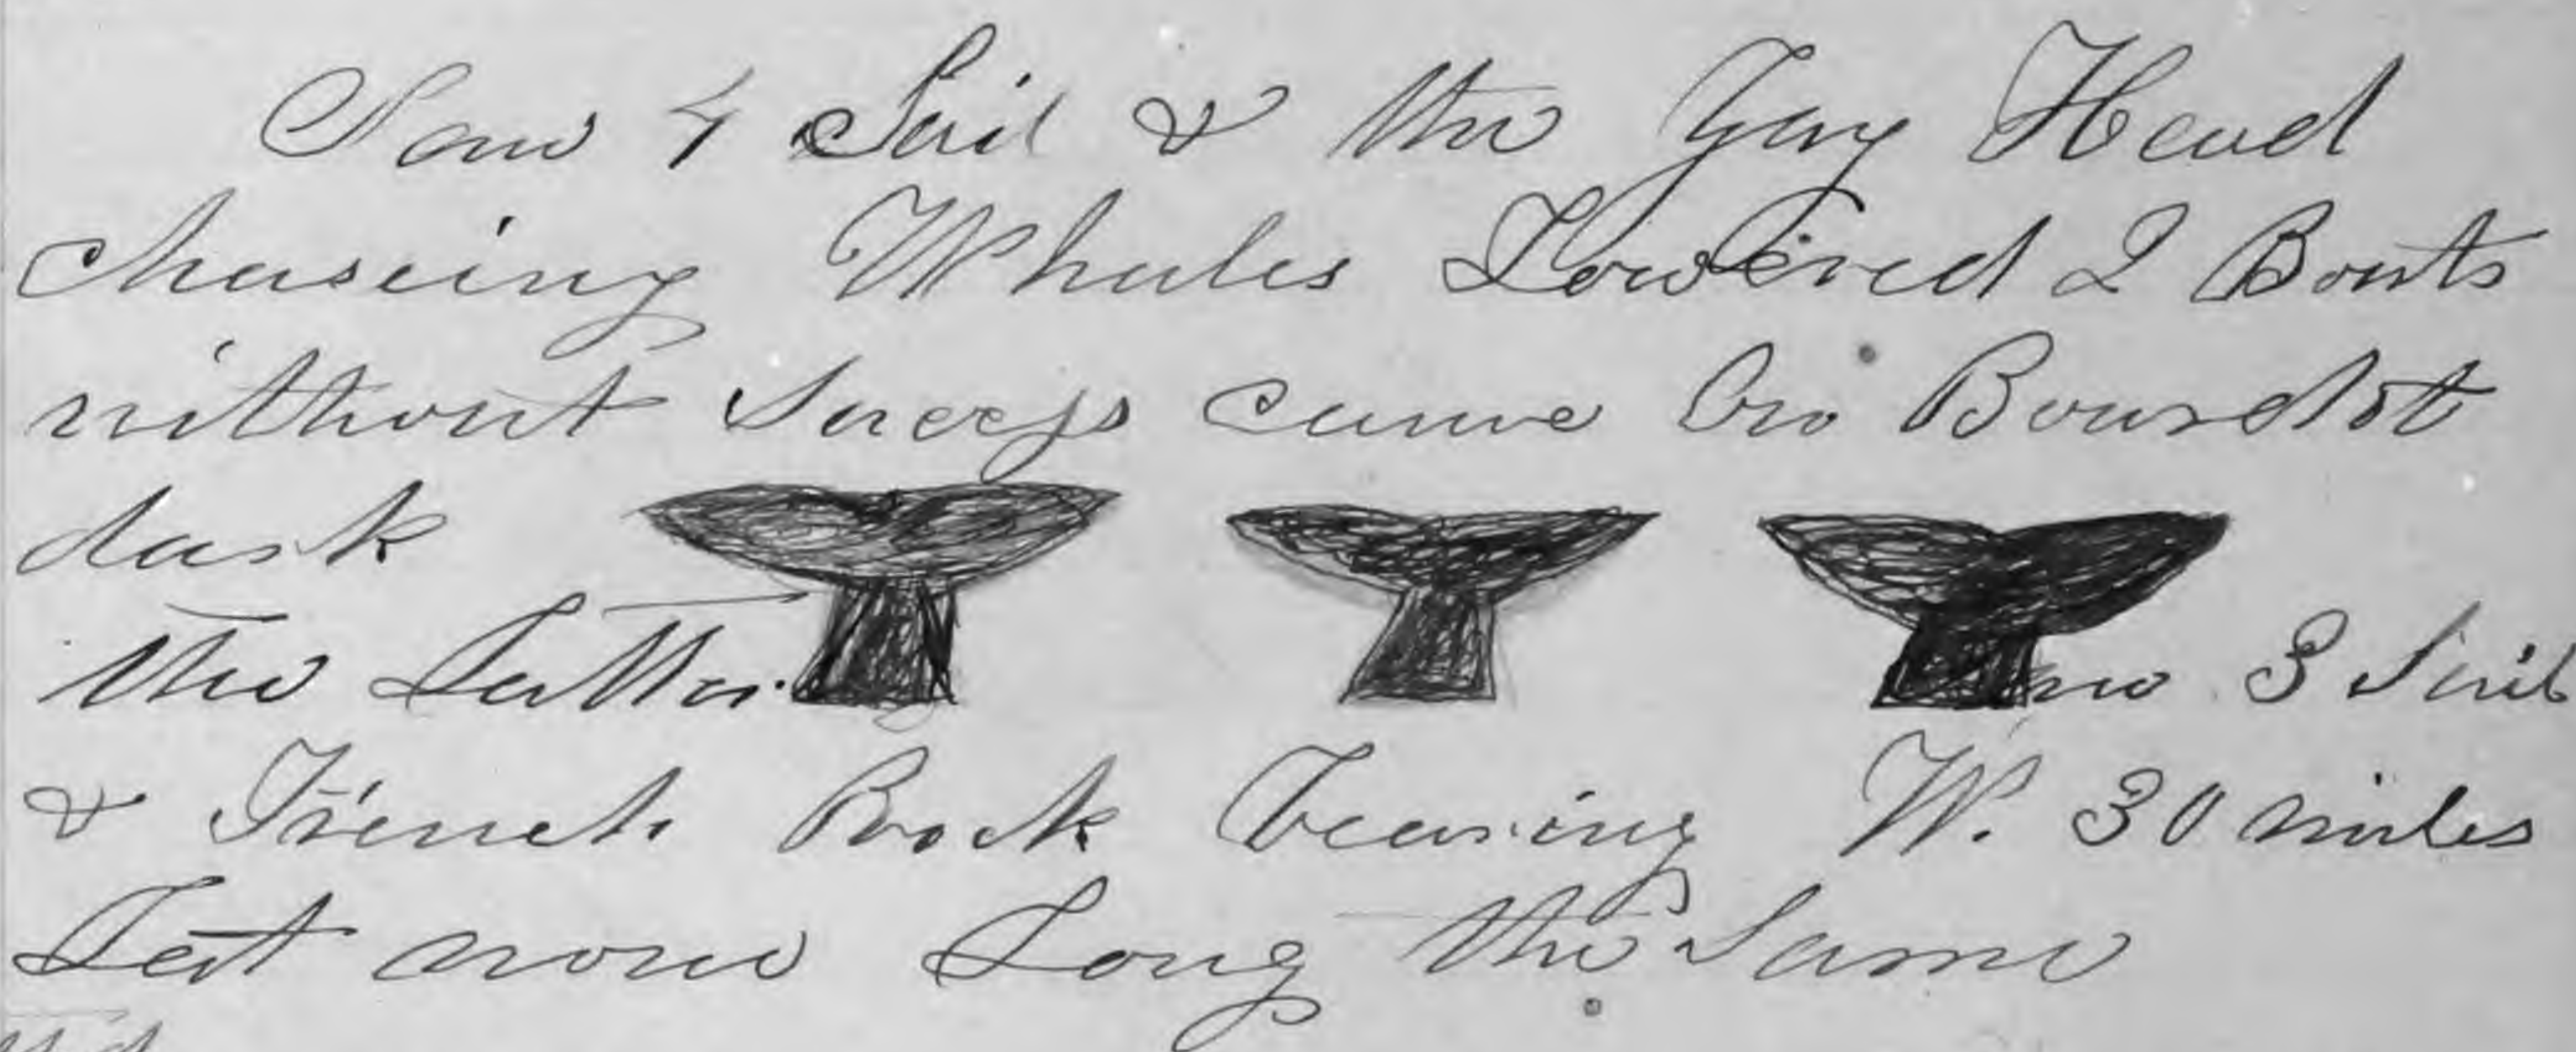 Saw 4 Sail & the Gay Head
chaseing Whales Lowered 2 Boats
without Sucess came on Board at
dark
the Latter Saw 3 Sail
& French Rock bearing W. 30 miles
Lat none Long the Same